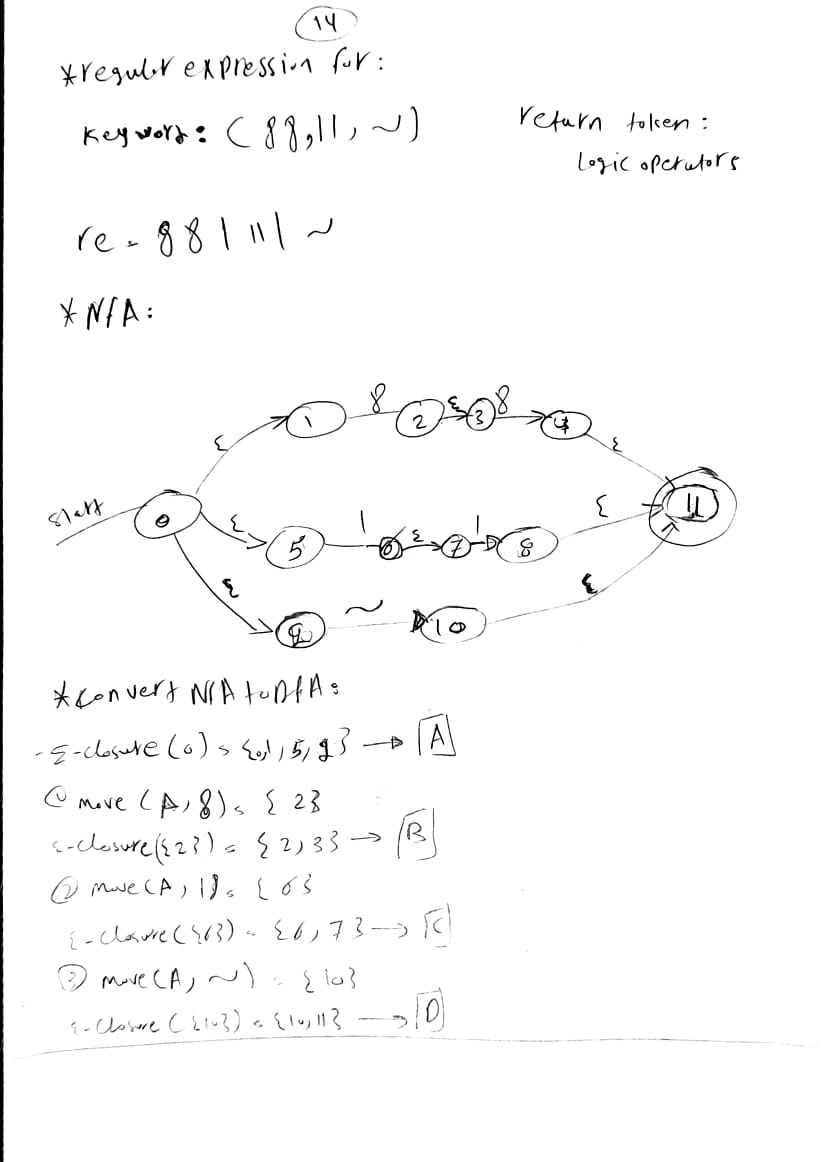 14
*regular expression for:
Keyword: (88,11, ~)
return token:
Logic operators
re = 88 | 11 | ~
* NFA:
8 ε 8
1 2 3 4
ε ε
start 0 11
ε 1 ε 1 ε
5 6 7 8
ε ~ ε
9 10
*convert NFA to DFA:
- ε-closure (0) = {0,1,5,9} → A
① move (A,8) = {2}
ε-closure({2}) = {2,3} → B
② move(A,1) = {6}
ε-closure({6}) = {6,7} → C
③ move(A,~) = {10}
ε-closure({10}) = {10,11} → D